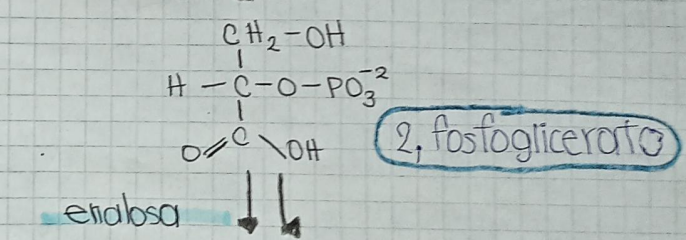 CH₂-OH
H-C-O-PO₃⁻²
O=C\OH
2, fosfoglicerato
enalosa